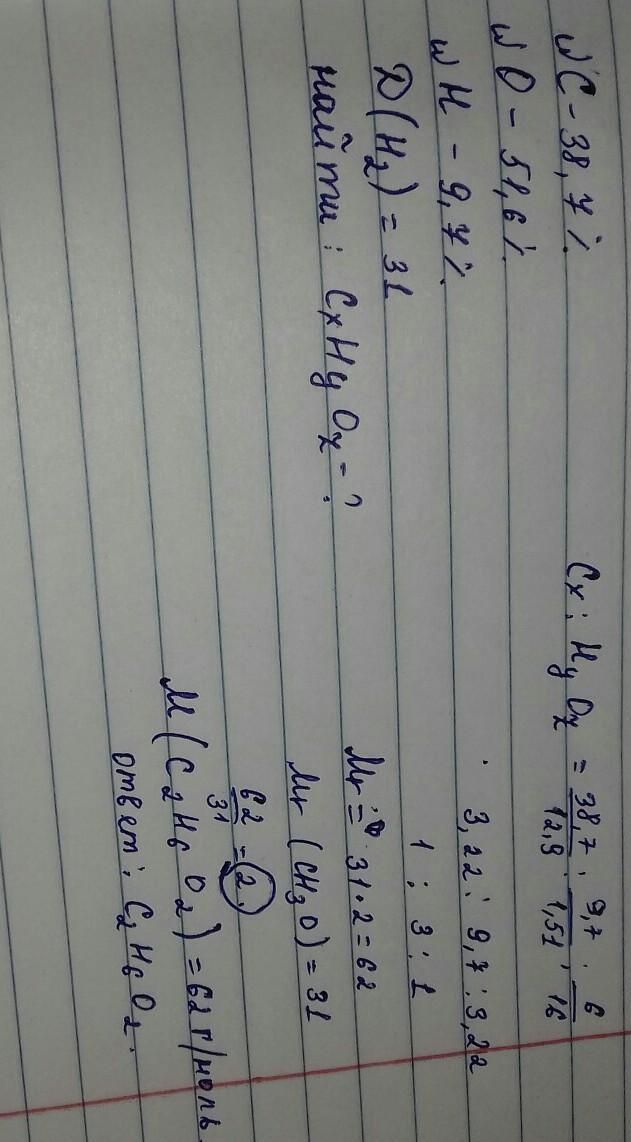 wC - 38,7%
wO - 51,6%
wH - 9,7%
D(H2) = 31
найти: CxHyOz - ?
Cx : Hy Oz = 38,7/12,9 : 9,7/1,51 : 6/16
3,22 : 9,7 : 3,22
1 : 3 : 1
Mr = 31·2 = 62
Mr (CH3O) = 31
62/31 = 2
M(C2H6O2) = 62 г/моль.
ответ: C2H6O2.